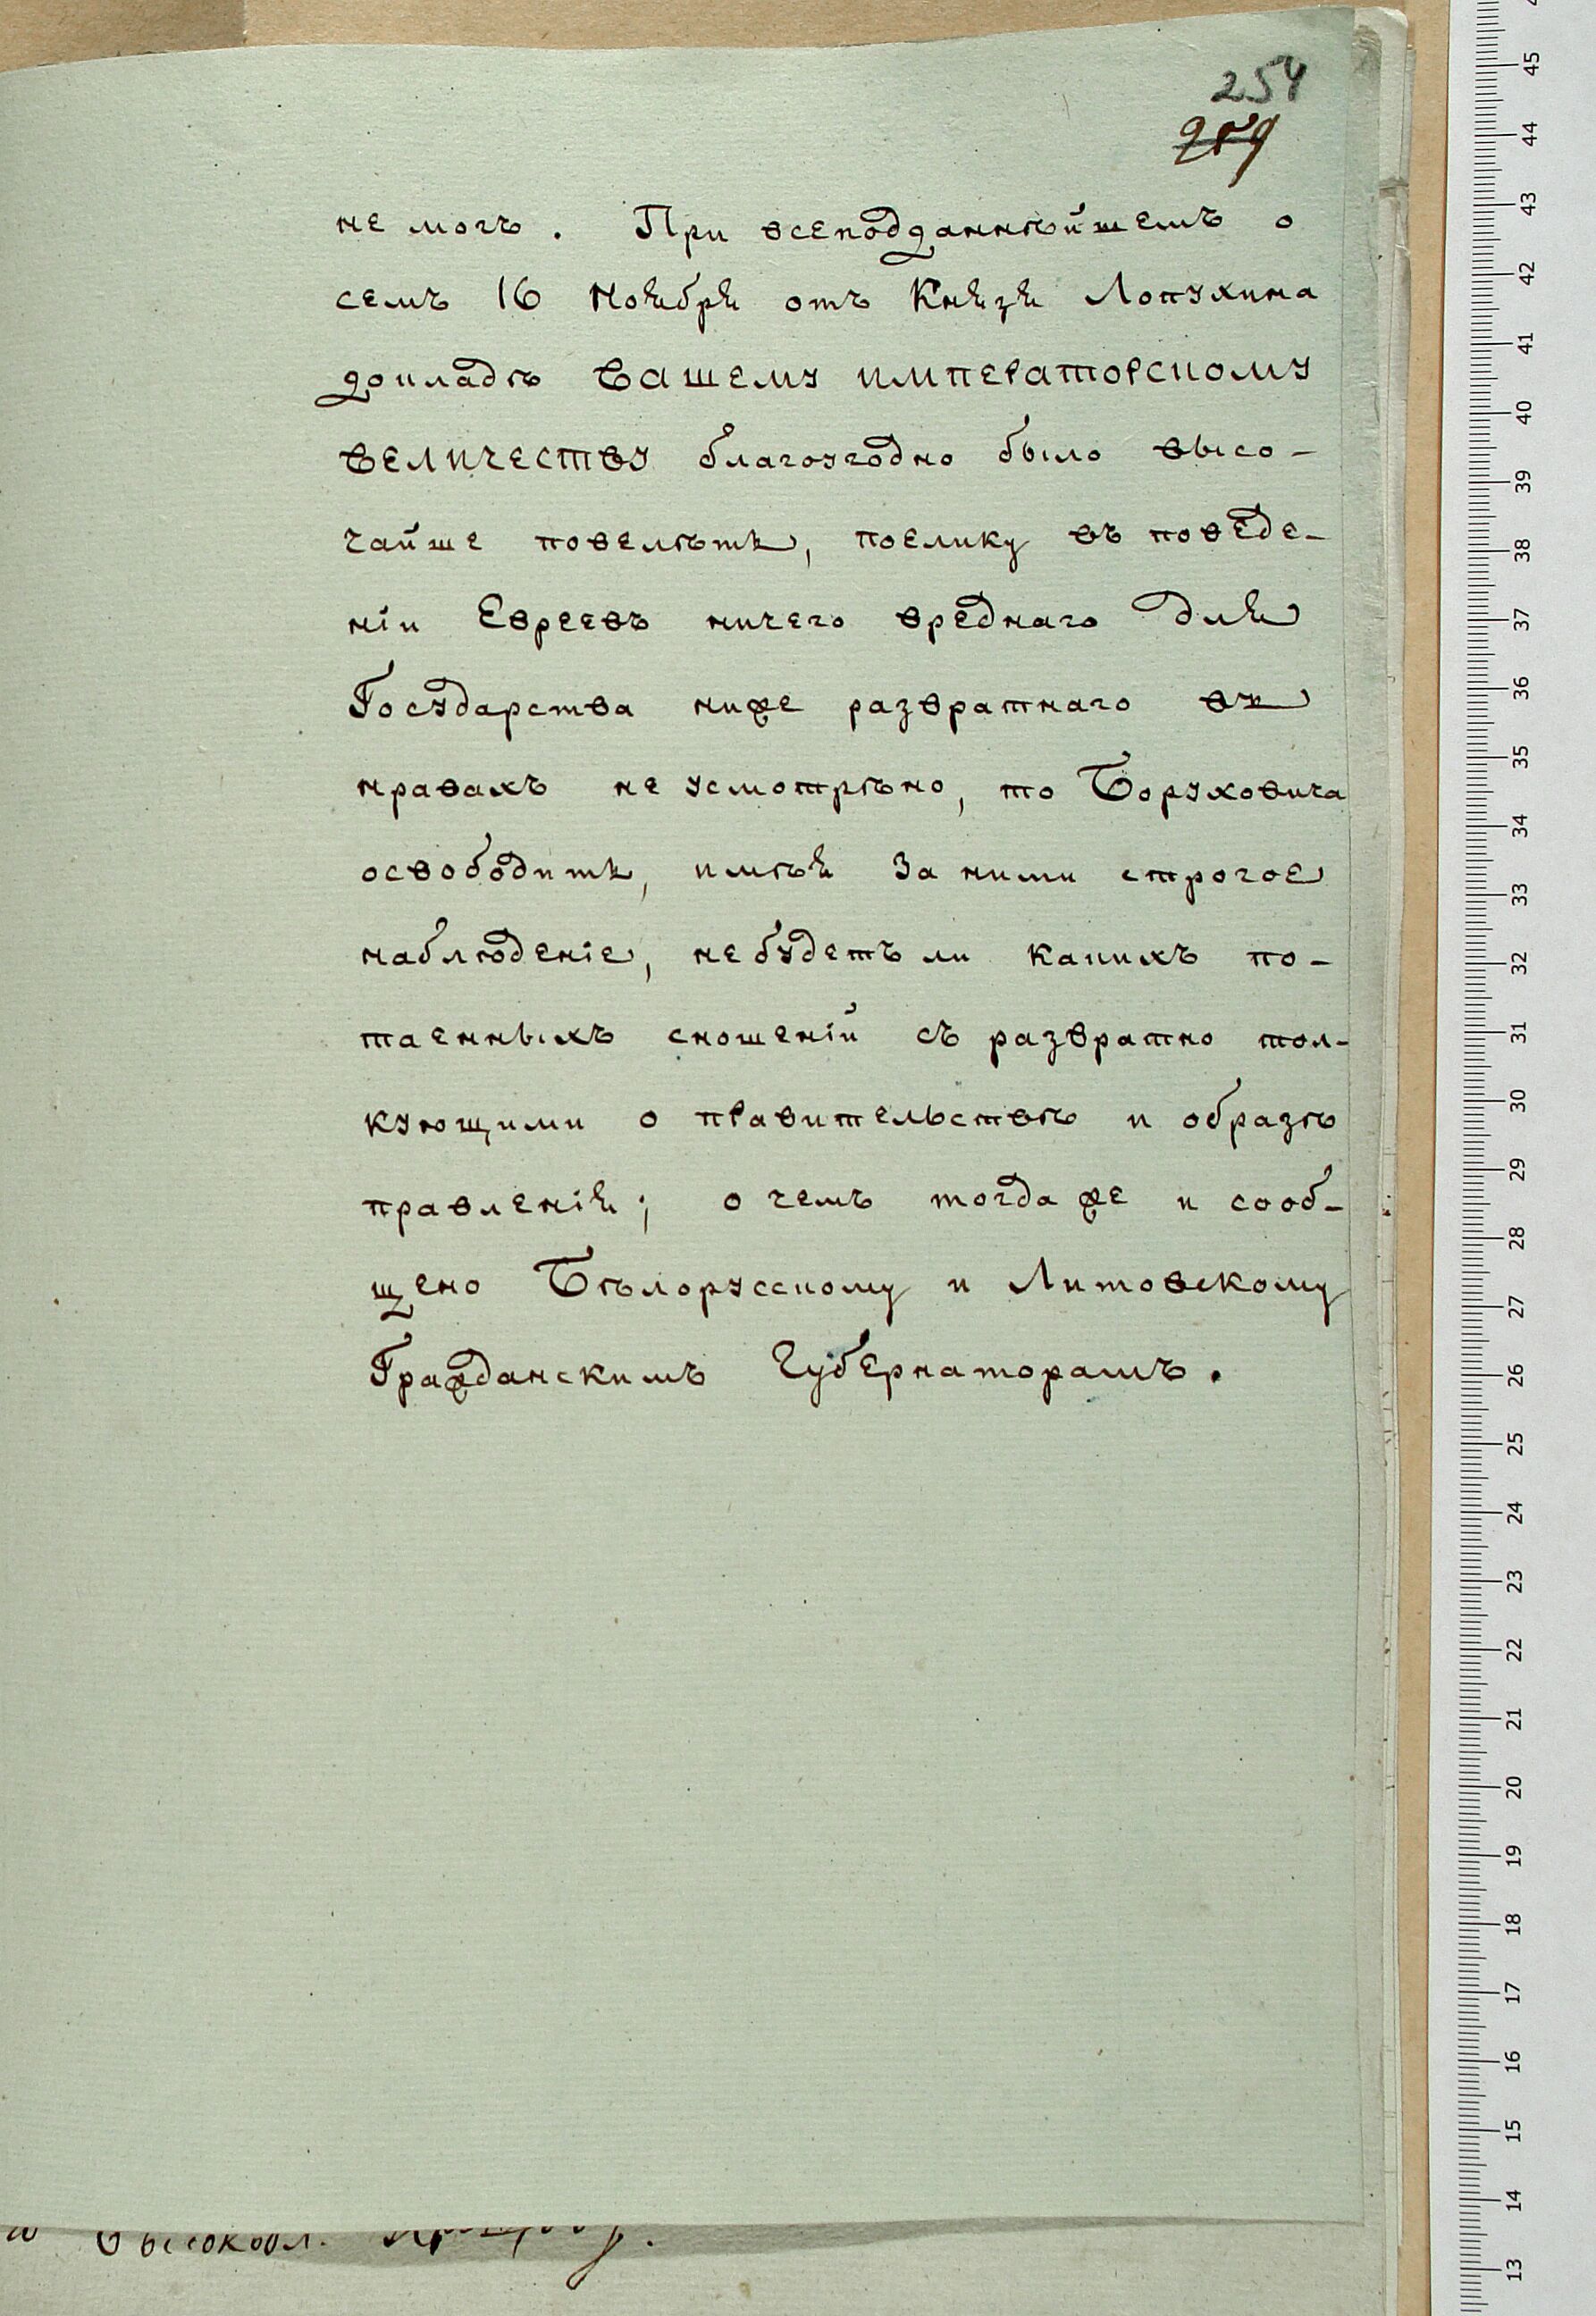 254
259
не могъ. При всеподданнѣйшемъ о
семъ 16 Ноября отъ Князя Лопухина
докладѣ ВАШЕМУ ИМПЕРАТОРСКОМУ
ВЕЛИЧЕСТВУ благоугодно было высо-
чайше повелѣть, поелику въ поведе-
ніи Евреевъ ничего вреднаго для
Государства ниже развратнаго въ
нравахъ не усмотрѣно, то Боруховича
освободить, имѣя за ними строгое
наблюденіе, не будетъ ли какихъ по-
таенныхъ сношеній съ развратно тол-
кующими о правительствѣ и образѣ
правленія; о чемъ тогда же и сооб-
щено Бѣлорусскому и Литовскому
Гражданскимъ Губернаторамъ.
45
44
43
42
41
40
39
38
37
36
35
34
33
32
31
30
29
28
27
26
25
24
23
22
21
20
19
18
17
16
15
14
13